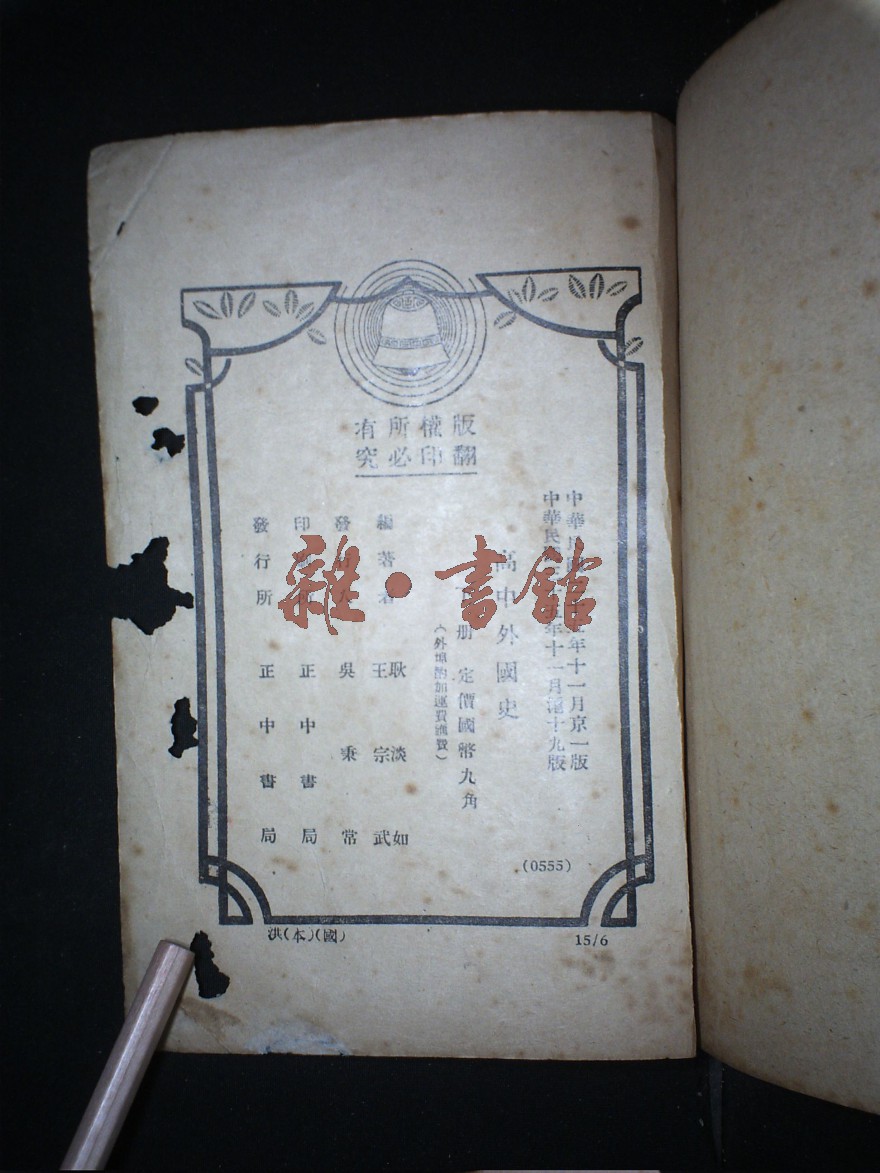 版權所有
翻印必究
中華民國二十五年十一月京一版
中華民 年十一月滬十九版
高中外國史
冊 定價國幣九角
(外埠酌加運費匯費)
編著者 耿淡如
王宗武
發 人 吳秉常
印 所 正中書局
發行所 正中書局
(0555)
洪(本)(國)
15/6
雜·書館